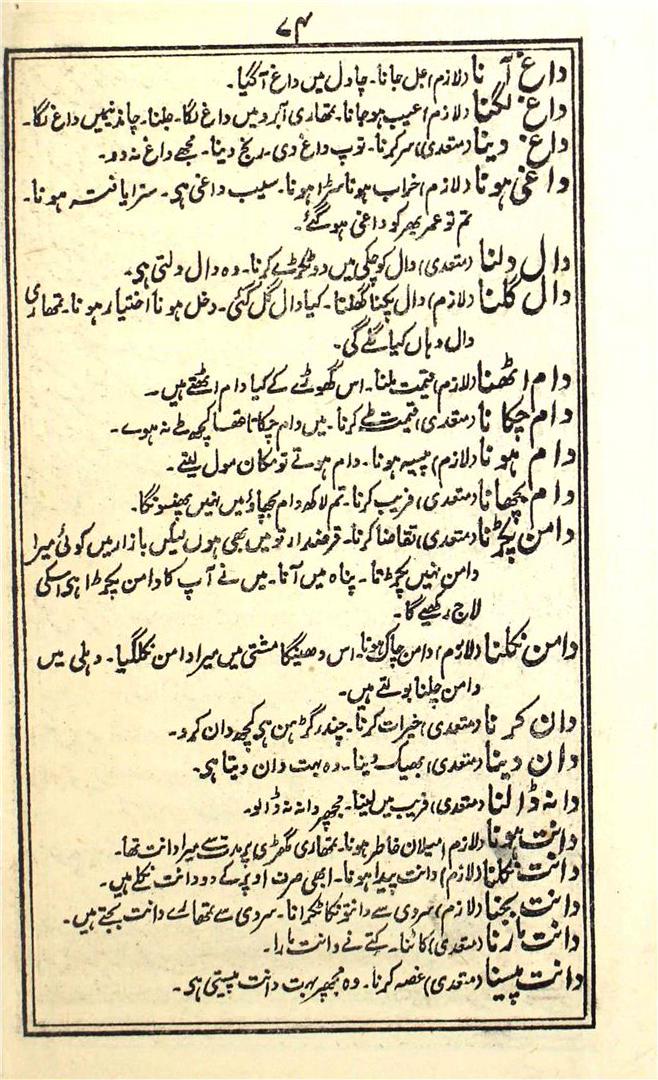 ۷۴
داغ آنا (لازم) جل جانا۔ چاول میں داغ آگیا۔
داغ لگنا (لازم) عیب ہوجانا۔ تمھاری آبرو میں داغ لگا۔ جلنا۔ چاند نیمیں داغ لگا۔
داغ دینا (متعدی) سر کرنا۔ توپ داغ دی۔ رنج دینا۔ مجھے داغ نہ دو۔
داغی ہونا (لازم) خراب ہونا سڑا ہونا۔ سیب داغی ہی۔ سزا یافتہ ہونا۔
تم تو عمر بھر کو داغی ہوگئے۔
دال دلنا (متعدی) دال کو چکی میں دو ٹکڑے کرنا۔ وہ دال دلتی ہی۔
دال گلنا (لازم) دال پکنا گھلنا۔ کیا دال گل گئی۔ دخل ہونا اختیار ہونا۔ تمھاری
دال وہاں کیا گلے گی۔
دام اٹھنا (لازم) قیمت ملنا۔ اس گھوڑے کے کیا دام اٹھتے ہیں۔
دام چکانا (متعدی) قیمت طے کرنا۔ میں دام چکاتا تھا کچھ طے نہ ہوے۔
دام ہونا (لازم) پیسہ ہونا۔ دام ہوتے تو مکان مول لیتے۔
دام بچھانا (متعدی) فریب کرنا۔ تم لاکھ دام بچھاؤ میں نہیں پھنسونگا۔
دامن پکڑنا (متعدی) تقاضا کرنا۔ قرضدار تو میں بھی ہوں لیکن بازار میں کوئی میرا
دامن نہیں پکڑتا۔ پناہ میں آنا۔ میں نے آپ کا دامن پکڑا ہی اسکی
لاج رکھیے گا۔
دامن نکلنا (لازم) دامن چاک ہونا۔ اس دھینگا مشتی میں میرا دامن نکلگیا۔ دہلی میں
دامن چلنا بولتے ہیں۔
دان کرنا (متعدی) خیرات کرنا۔ چندر گرہن ہی کچھ دان کرو۔
دان دینا (متعدی) بھیک دینا۔ وہ بہت دان دیتا ہی۔
دانہ ڈالنا (متعدی) فریب میں لینا۔ مجھپر دانہ نہ ڈالو۔
دانت ہونا (لازم) میلان خاطر ہونا۔ تمھاری گھڑی پر مدت سے میرا دانت تھا۔
دانت نکلنا (لازم) دانت پیدا ہونا۔ ابھی صرف اوپر کے دو دانت نکلے ہیں۔
دانت بجنا (لازم) سردی سے دانتونکا ٹکرانا۔ سردی سے تمھارے دانت بجتے ہیں۔
دانت مارنا (متعدی) کاٹنا۔ کتے نے دانت مارا۔
دانت پیسنا (متعدی) غصہ کرنا۔ وہ مجھپر بہت دانت پیستی ہی۔